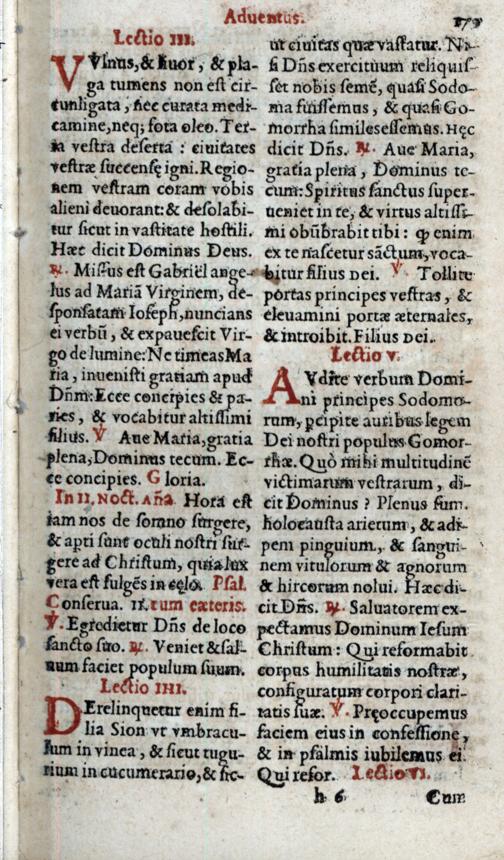 Aduentus.
Lectio III.
VVlnus, & liuor, & pla-
ga tumens non est cir-
cunligata, nec curata medi-
camine, neq; fota oleo. Ter-
ra vestra deserta: ciuitates
vestræ succensę igni. Regio-
nem vestram coram vobis
alieni deuorant: & desolabi-
tur sicut in vastitate hostili.
Hæc dicit Dominus Deus.
℟. Missus est Gabriel ange-
lus ad Mariā Virginem, de-
sponsatam Ioseph, nuncians
ei verbū, & expauescit Vir-
go de lumine: Ne timeas Ma
ria, inuenisti gratiam apud
Dñm: Ecce concipies & pa-
ries, & vocabitur altissimi
filius. ℣ Aue Maria, gratia
plena, Dominus tecum. Ec-
ce concipies. Gloria.
In II. Noct. Aña. Hora est
iam nos de somno surgere,
& apti sunt oculi nostri sur-
gere ad Christum, quia lux
vera est fulgēs in cęlo. Psal.
Conserua. 11. cum cæteris.
℣. Egredietur Dñs de loco
sancto suo. ℟. Veniet & sal-
uum faciet populum suum.
Lectio IIII.
DErelinquetur enim fi-
lia Sion vt vmbracu-
lum in vinea, & sicut tugu-
rium in cucumerario, & sic-
ut ciuitas quæ vastatur. Ni-
si Dñs exercituum reliquis-
set nobis semē, quasi Sodo-
ma fuissemus, & quasi Go-
morrha similes essemus. Hęc
dicit Dñs. ℟. Aue Maria,
gratia plena, Dominus te-
cum: Spiritus sanctus super-
ueniet in te, & virtus altissi-
mi obūbrabit tibi: ꝙ enim
ex te nascetur sāctum, voca-
bitur filius Dei. ℣. Tollite
portas principes vestras, &
eleuamini portæ æternales,
& introibit. Filius Dei.
Lectio V.
AVdite verbum Domi-
ni principes Sodomo-
rum, pcipite auribus legem
Dei nostri populus Gomor-
rhæ. Quò mihi multitudinē
victimarum vestrarum, di-
cit Dominus? Plenus sum.
holocausta arietum, & adi-
pem pinguium, & sangui-
nem vitulorum & agnorum
& hircorum nolui. Hæc di-
cit Dñs. ℟. Saluatorem ex-
pectamus Dominum Iesum
Christum: Qui reformabit
corpus humilitatis nostræ,
configuratum corpori clari-
tatis suæ. ℣. Pręoccupemus
faciem eius in confessione,
& in psalmis iubilemus ei.
Qui refor. Lectio VI.
h 6 Cum